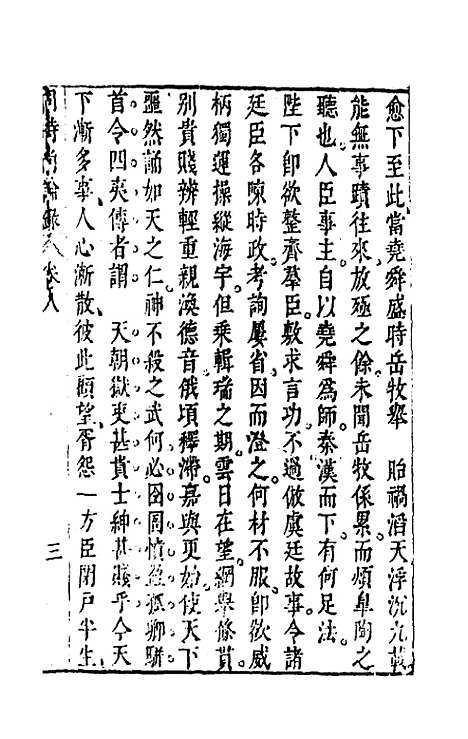 愈下至此當堯舜盛時岳牧舉　貽禍滔天浮沉九載
能無事蹟往來放殛之餘未聞岳牧係累而煩皐陶之
聽也人臣事主自以堯舜爲師秦漢而下有何足法
陛下卽欲整齊羣臣敷求言功不過倣虞廷故事令諸
廷臣各陳時政考詢屢省因而澄之何材不服卽欲威
柄獨運操縱海宇但乘輯瑞之期雲日在望網舉條貫
別貴賤辨輕重親渙德音俄頃釋滯嘉與更始使天下
翕然誦如天之仁神不殺之武何必囹圄憤盈孤卿駢
首令四夷傳者謂　天朝獄吏甚貴士紳甚賤乎今天
下漸多事人心漸散彼此顧望胥怨一方臣閉戶半生
周詩尚論錄　卷八
三